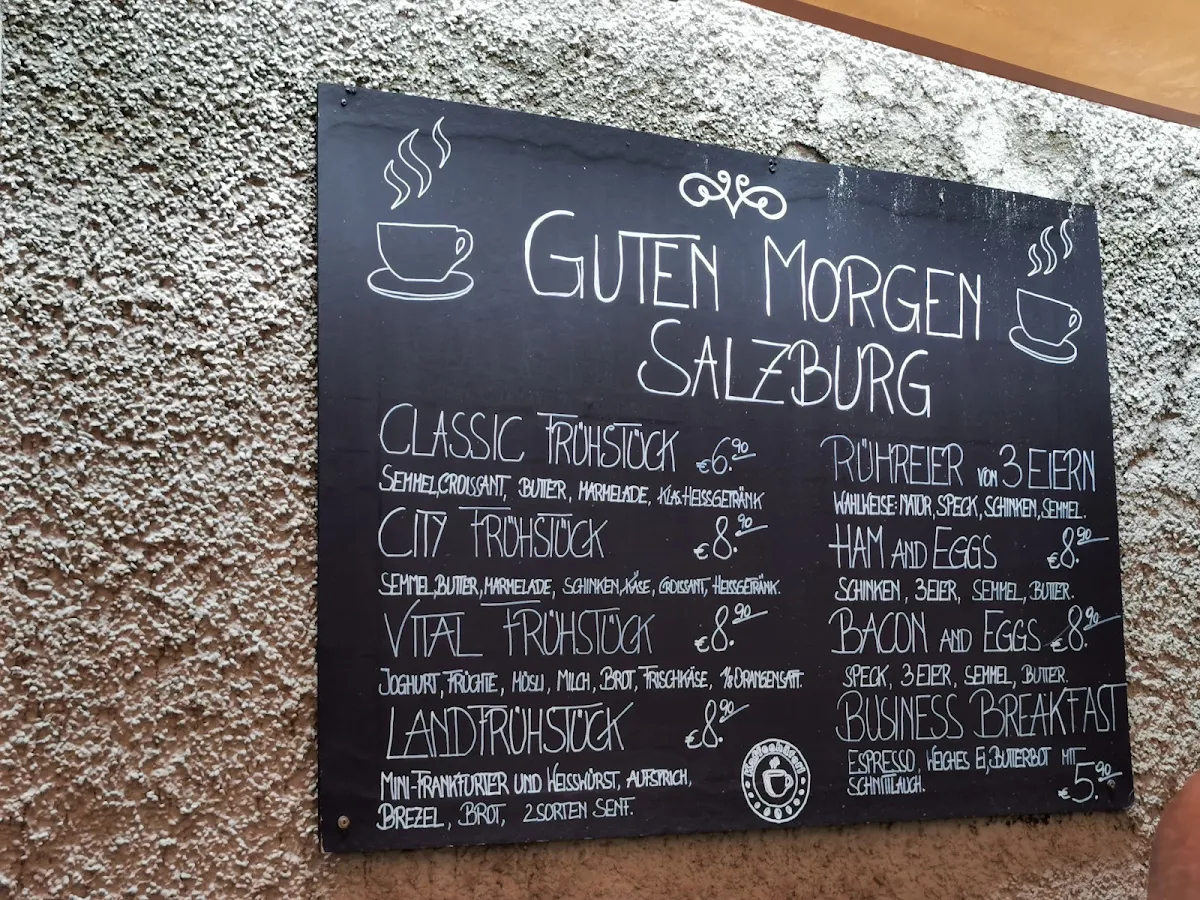 GUTEN MORGEN
SALZBURG
CLASSIC FRÜHSTÜCK €6.90
SEMMEL, CROISSANT, BUTTER, MARMELADE, KLAS HEISSGETRÄNK
CITY FRÜHSTÜCK €8.90
SEMMEL, BUTTER, MARMELADE, SCHINKEN, KÄSE, CROISSANT, HEISSGETRÄNK.
VITAL FRÜHSTÜCK €8.90
JOGHURT, FRÜCHTE, MÜSLI, MILCH, BROT, FRISCHKÄSE, 1/8 ORANGENSAFT.
LANDFRÜHSTÜCK €8.90
MINI-FRANKFURTER UND WEISSWÜRST, AUFSTRICH,
BREZEL, BROT, 2 SORTEN SENF.
RÜHREIER VON 3 EIERN
WAHLWEISE: NATUR, SPECK, SCHINKEN, SEMMEL.
HAM AND EGGS €8.90
SCHINKEN, 3 EIER, SEMMEL, BUTTER.
BACON AND EGGS €8.90
SPECK, 3 EIER, SEMMEL, BUTTER.
BUSINESS BREAKFAST
ESPRESSO, WEICHES EI, BUTTERBOT MIT
SCHNITTLAUCH.
€5.90